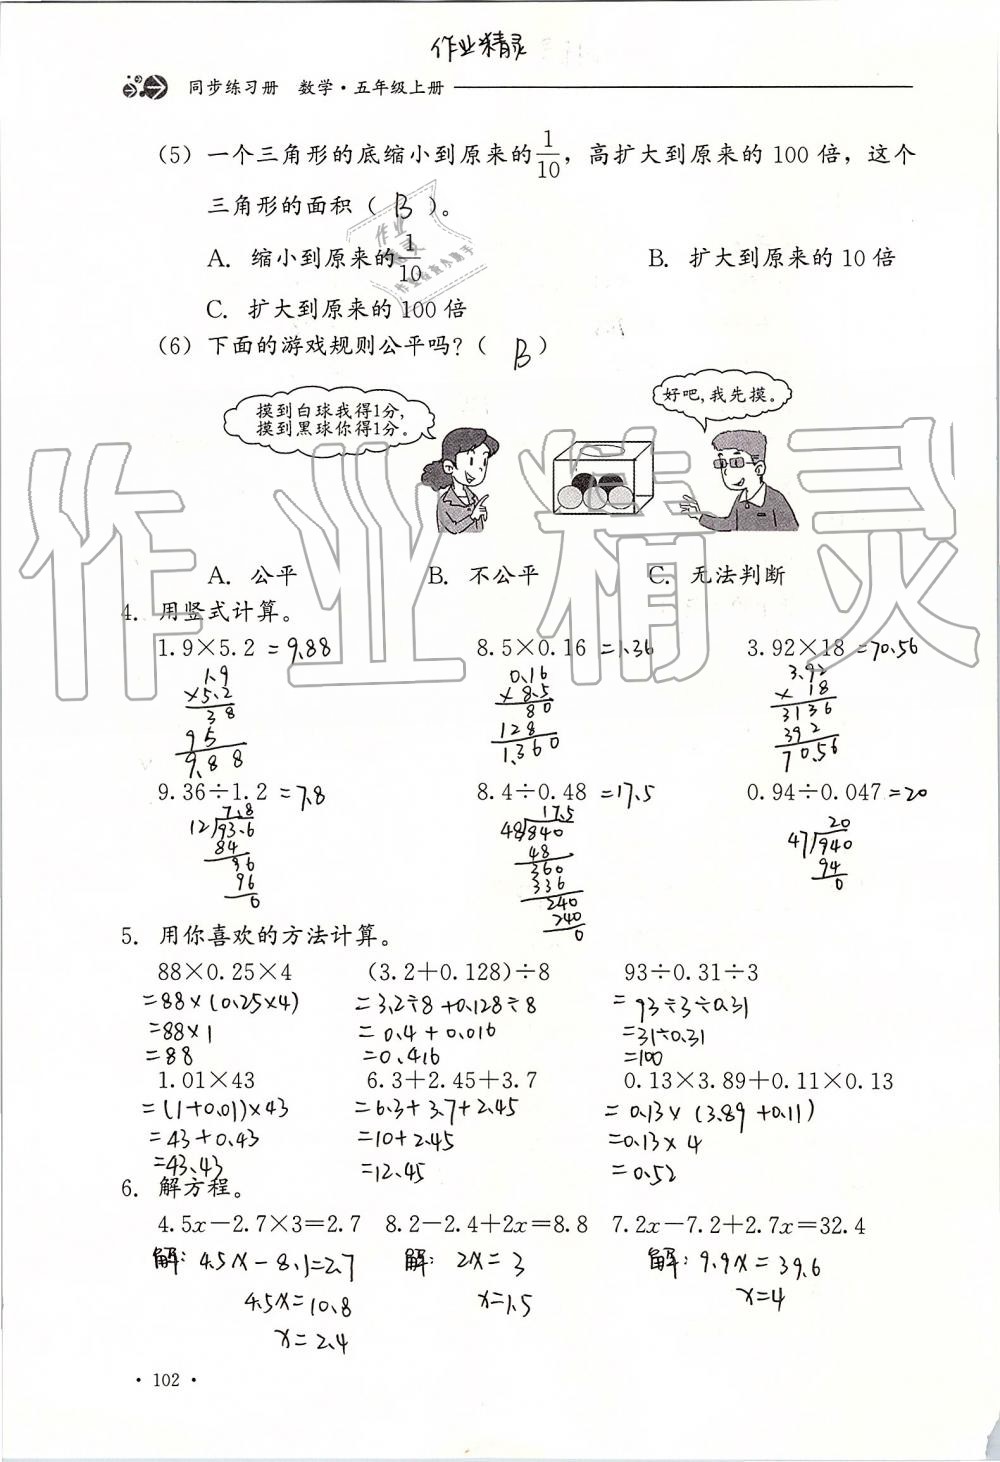 作业精灵
同步练习册 数学·五年级上册
(5) 一个三角形的底缩小到原来的1/10，高扩大到原来的 100 倍，这个
三角形的面积（ B ）。
A. 缩小到原来的1/10 B. 扩大到原来的 10 倍
C. 扩大到原来的 100 倍
(6) 下面的游戏规则公平吗?（ B ）
摸到白球我得1分,
摸到黑球你得1分。
好吧,我先摸。
A. 公平 B. 不公平 C. 无法判断
作业精灵
4. 用竖式计算。
1.9×5.2 =9.88 8.5×0.16 =1.36 3.92×18 =70.56
1.9 0.16 3.92
×5.2 ×8.5 × 18
38 80 3136
95 128 392
9.88 1.360 70.56
9.36÷1.2 =7.8 8.4÷0.48 =17.5 0.94÷0.047 =20
7.8 17.5 20
12/93.6 48/840 47/940
84 48 94
96 360 0
96 336
0 240
240
0
5. 用你喜欢的方法计算。
88×0.25×4 (3.2+0.128)÷8 93÷0.31÷3
=88×(0.25×4) =3.2÷8+0.128÷8 =93÷3÷0.31
=88×1 =0.4+0.016 =31÷0.31
=88 =0.416 =100
1.01×43 6.3+2.45+3.7 0.13×3.89+0.11×0.13
=(1+0.01)×43 =6.3+3.7+2.45 =0.13×(3.89+0.11)
=43+0.43 =10+2.45 =0.13×4
=43.43 =12.45 =0.52
6. 解方程。
4.5x-2.7×3=2.7 8.2-2.4+2x=8.8 7.2x-7.2+2.7x=32.4
解: 4.5x-8.1=2.7 解: 2x=3 解: 9.9x=39.6
4.5x=10.8 x=1.5 x=4
x=2.4
· 102 ·